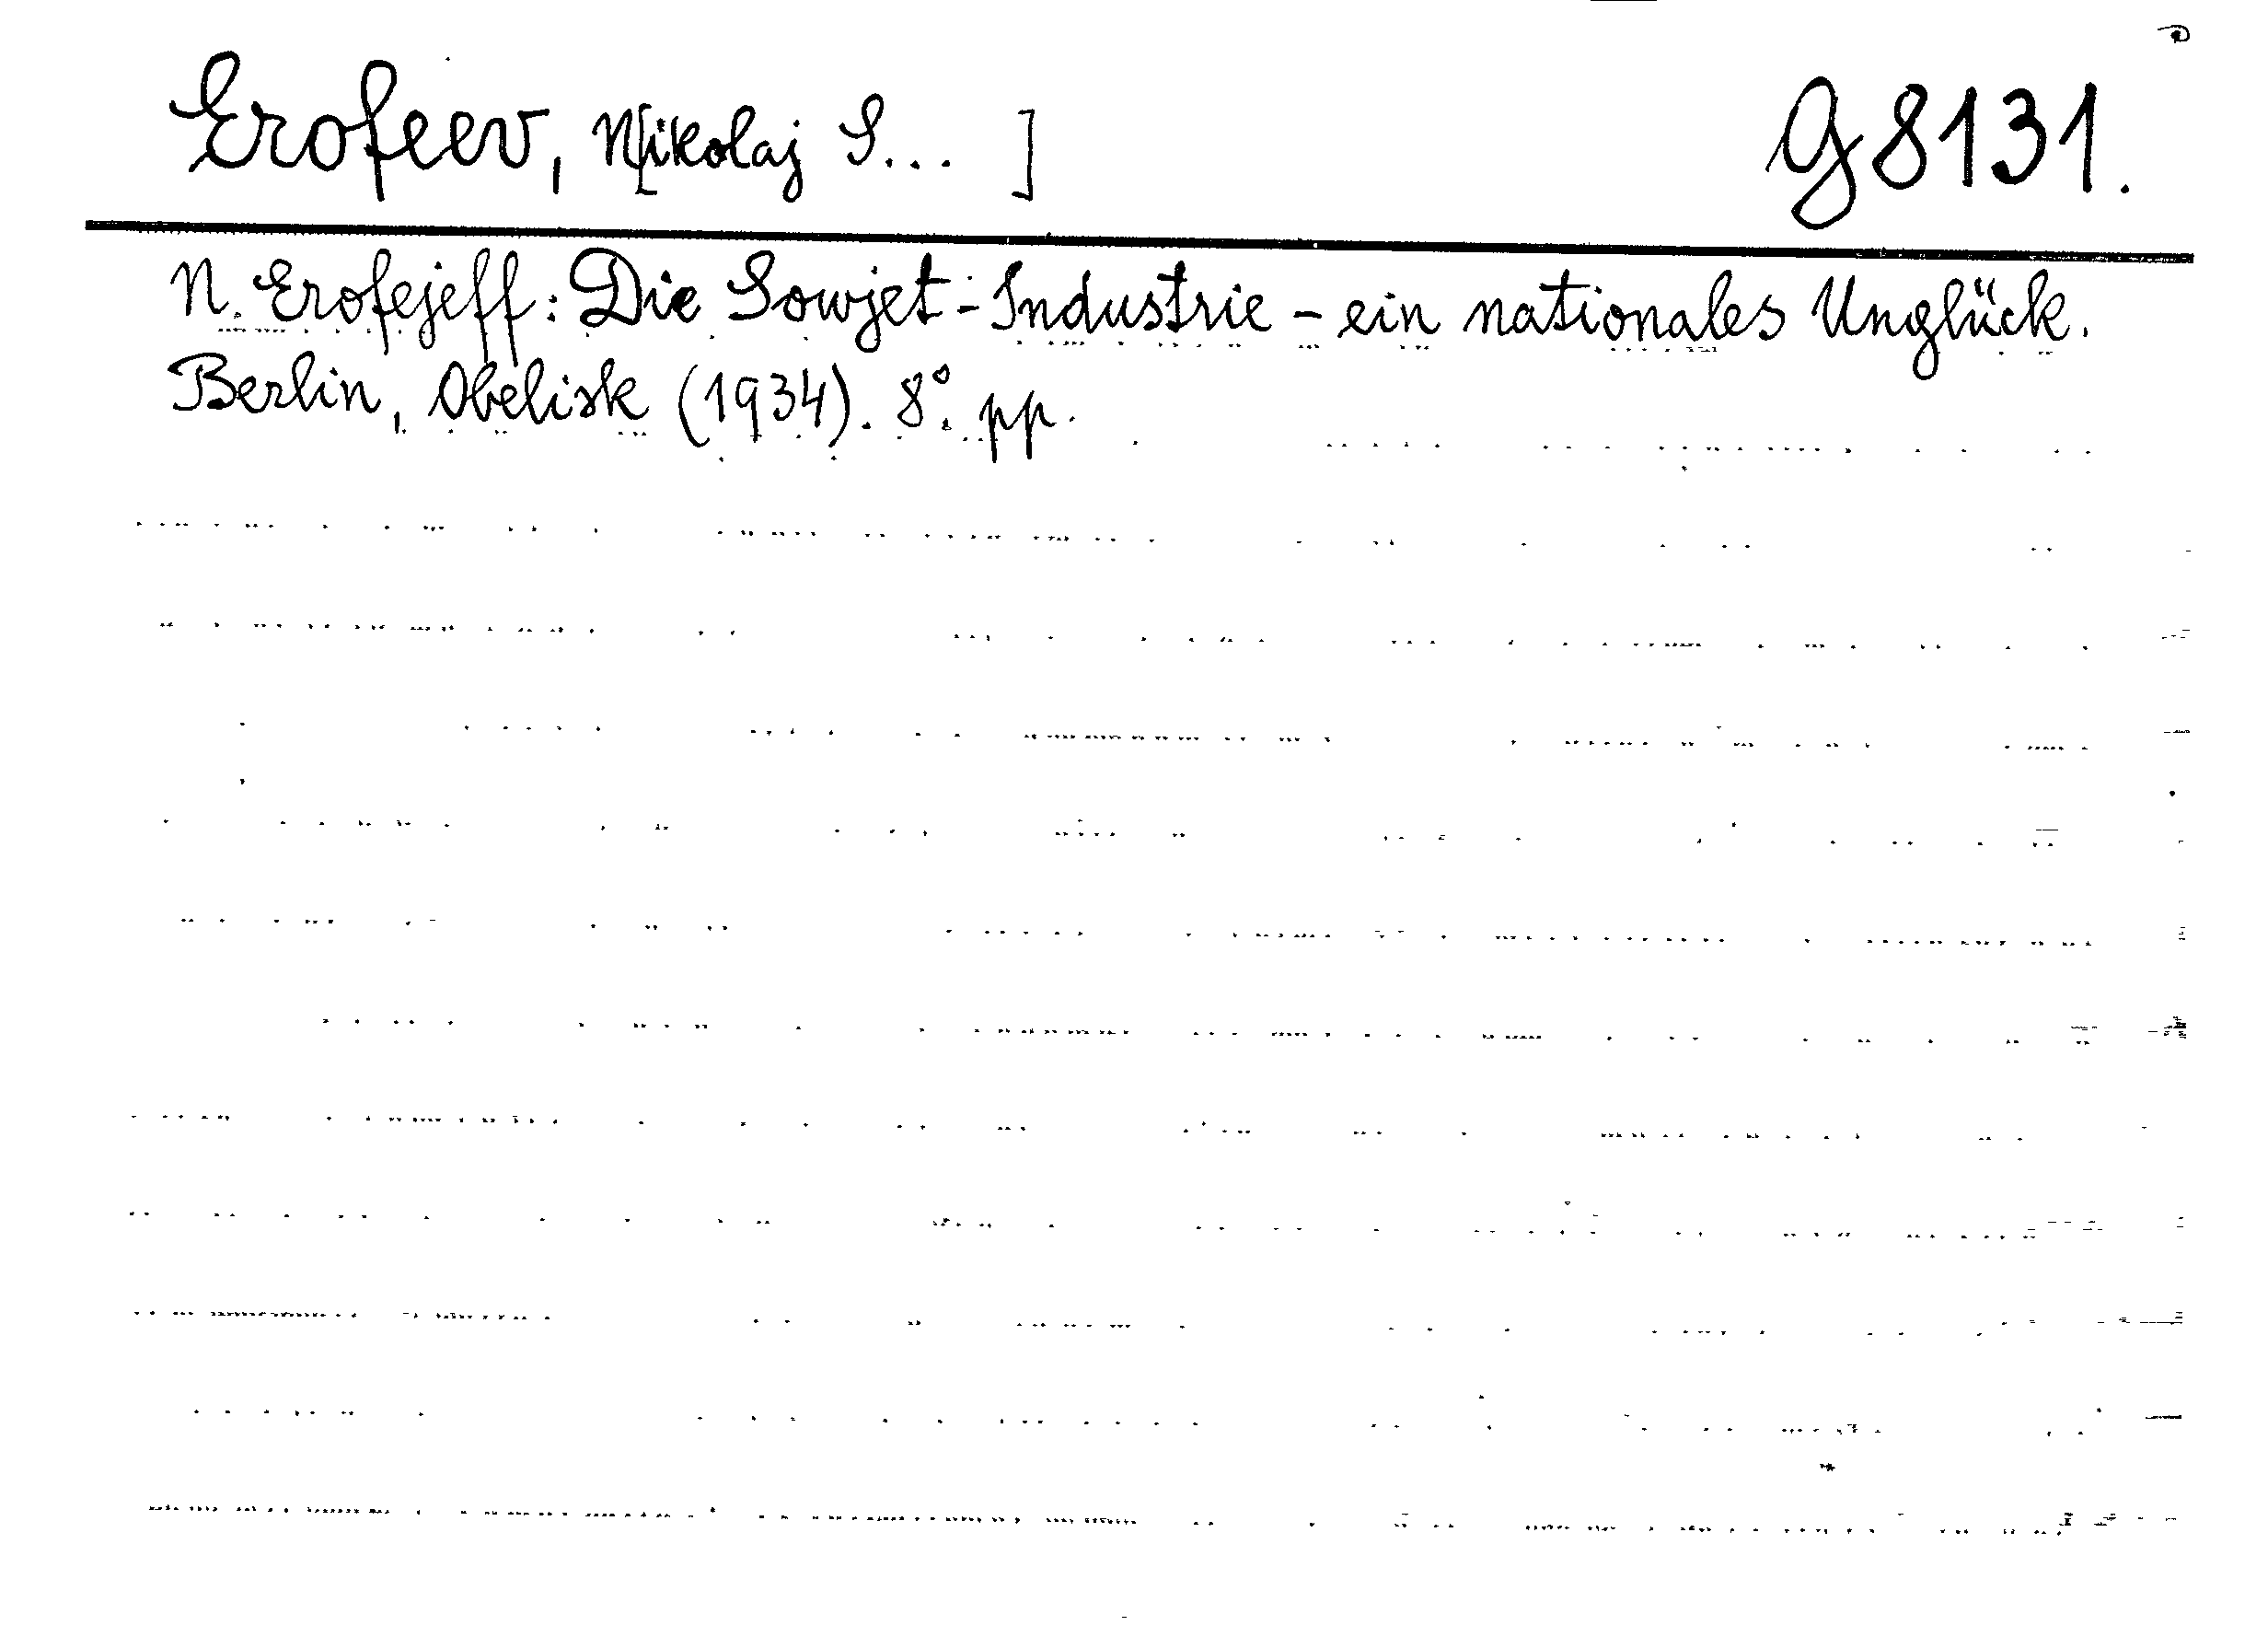 Erofeev, N[ikolaj S... ] G 8131.
N. Erofejeff: Die Sowjet-Industrie – ein nationales Unglück.
Berlin, Obelisk (1934). 8°. pp.